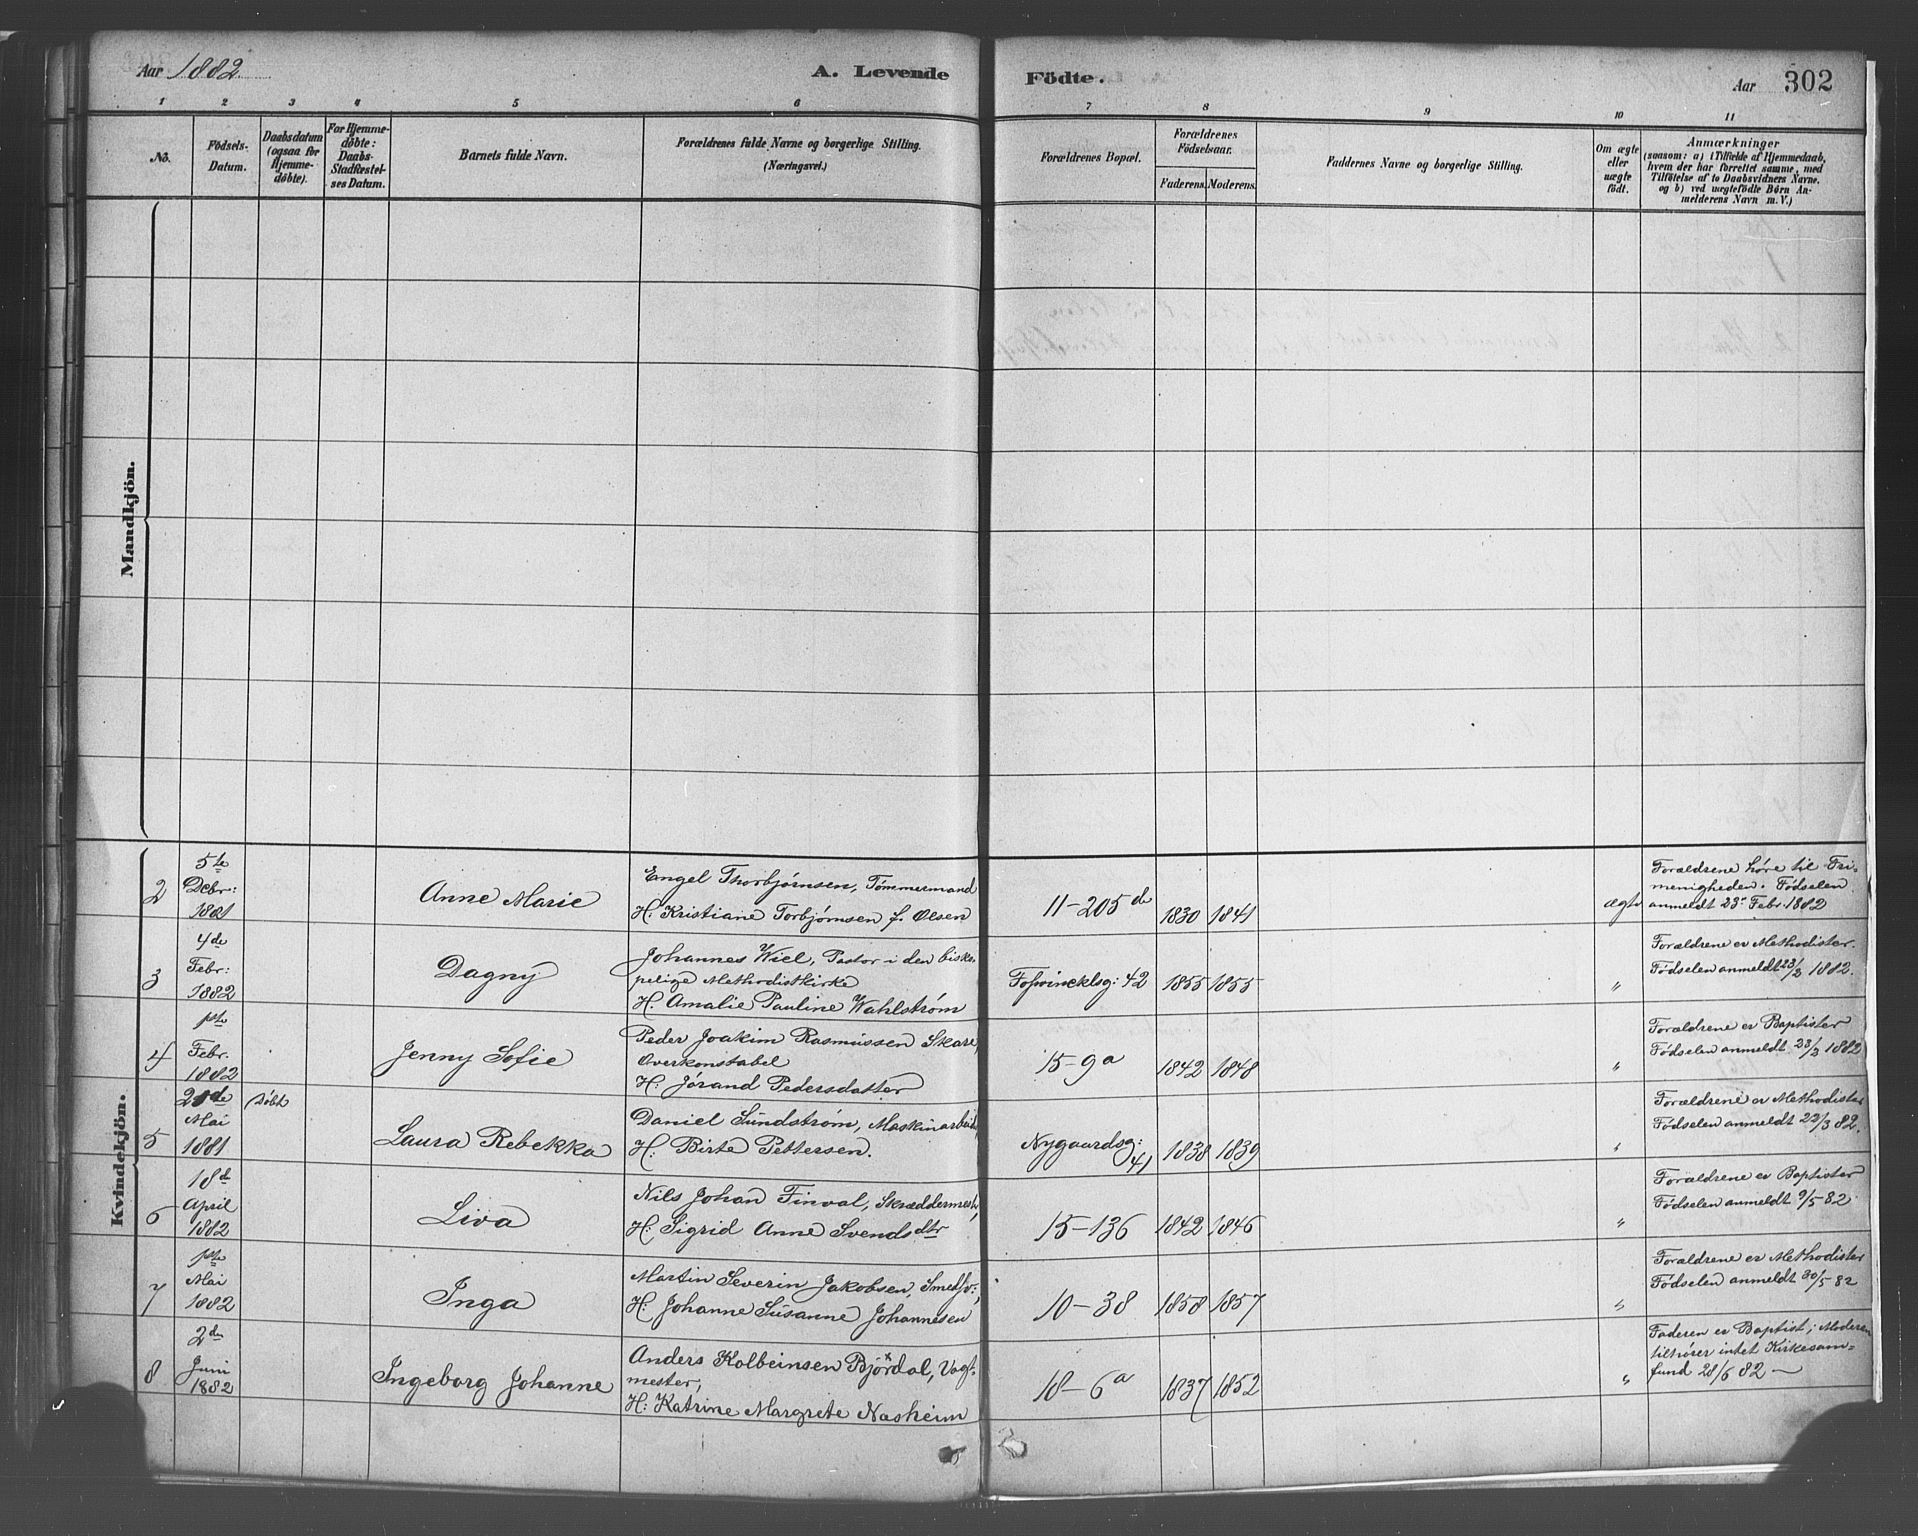 Aar 1882.
A. Levende Födte.
Aar 302
1 2 3 4 5 6 7 8 9 10 11
No.
Födsels-Datum.
Daabsdatum (ogsaa for Hjemme-döbte).
For Hjemme-döbte: Daabs-Stadfæstel-ses Datum.
Barnets fulde Navn.
Forældrenes fulde Navne og borgerlige Stilling. (Næringsvei.)
Forældrenes Bopæl.
Forældrenes Födselsaar.
Faderens. Moderens.
Faddernes Navne og borgerlige Stilling.
Om ægte eller uægte födt.
Anmærkninger
(saasom: a) i Tilfælde af Hjemmedaab,
hvem der har forrettet samme, med
Tilföielse af to Daabsvidners Navne.
og b) ved uægtefödte Börn An-
melderens Navn m. V.)
Mandkjön.
Kvindekjön.
2
5te
Debr:
1881
Anne Marie
Engel Thorbjørnsen, Tømmermand
H: Kristiane Torbjørnsen f. Olsen
11-205 de
1830 1841
ægte
Forældrene høre til Fri-
menigheden. Fødselen
anmeldt 23. Febr. 1882
3
4de
Febr:
1882
Dagny
Johannes Wiel, Pastor i den bisko-
pelige Methodistkirke
H: Amalie Pauline Wahlstrøm
Fosvincklsg: 42
1855 1855
"
Forældrene er Methodister.
Fødselen anmeldt 23/3 1882.
4
1ste
Febr.
1882
Jenny Sofie
Peder Joakim Rasmussen Skare,
Overkonstabel
H: Jórand Pedersdatter
15-9a
1842 1848
"
Forældrene er Baptister
Fødselen anmeldt 23/3 1882
5
Mai
1881
Døbt
Laura Rebekka
Daniel Sundstrøm, Maskinarbeid,
H: Birte Pettersen.
Nygaardsg: 41
1838 1839
"
Forældrene er Methodister
Fødselen anmeldt 22/3 82.
6
18d
April
1882
Liva
Nils Johan Finval, Skræddermest,
H: Sigrid Anne Svendsdtr
15-136
1842 1846
"
Forældrene er Baptister
Fødselen anmeldt 9/5 82
7
1ste
Mai
1882
Inga
Martin Severin Jakobsen, Smedfor:,
H: Johanne Susanne Johannesen
10-38
1858 1857
"
Forældrene er Methodister
Fødselen anmeldt 30/5 82
8
2den
Juni
1882
Ingeborg Johanne
Anders Kolbeinsen Björdal, Vagt-
mester,
H: Katrine Margrete Nasheim
18-6a
1837 1852
"
Faderen er Baptist; Moderen
tilhører intet Kirkesam-
fund 28/6 82